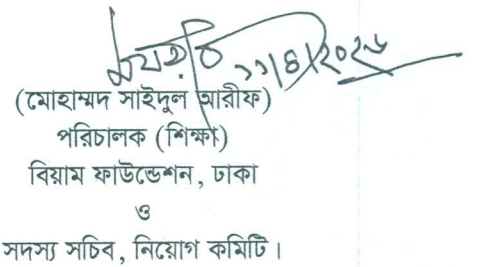 ১১/৪/২০২৬
(মোহাম্মদ সাইদুল আরীফ)
পরিচালক (শিক্ষা)
বিয়াম ফাউন্ডেশন, ঢাকা
ও
সদস্য সচিব, নিয়োগ কমিটি।